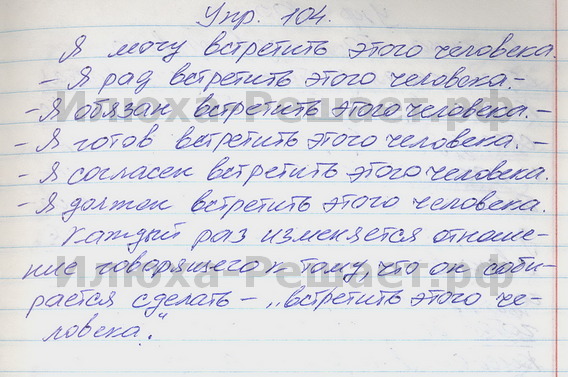 Упр. 104.
Я могу встретить этого человека.
- Я рад встретить этого человека. -
- Я обязан встретить этого человека. -
- Я готов встретить этого человека. -
- Я согласен встретить этого человека.
- Я должен встретить этого человека.
Каждый раз изменяется отноше-
ние говорящего к тому, что он соби-
рается сделать - „встретить этого че-
ловека."
Илюха-Решает.рф
Илюха-Решает.рф